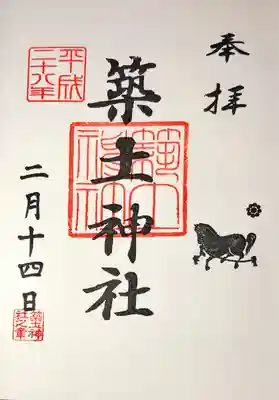 奉拝
築土神社
平成
二十八年
築土
神社
二月十四日
築土神
社之章